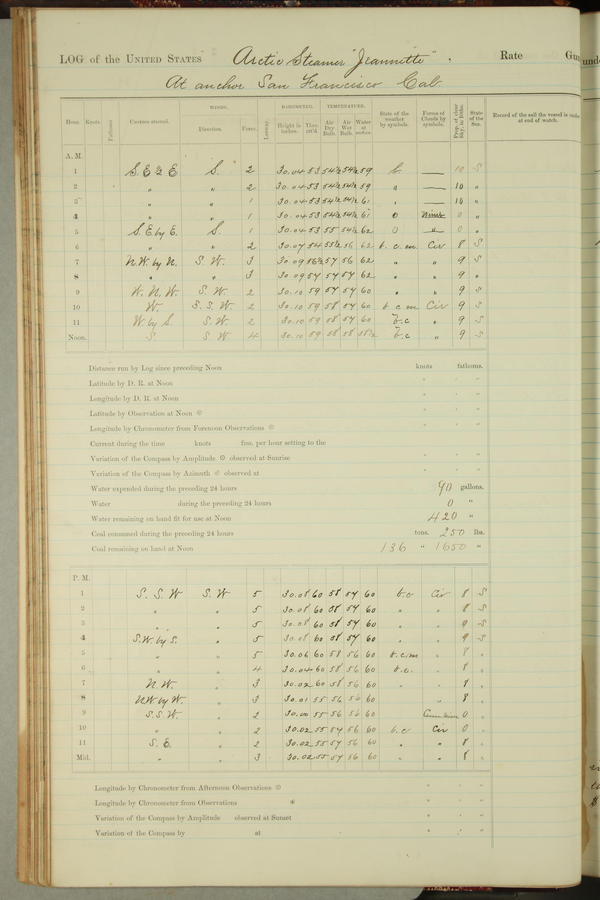 LOG of the UNITED STATES Arctic Steamer "Jeannette", Rate Gun
At anchor San Francisco Cal.
WINDS. BAROMETER. TEMPERATURE.
Hour. Knots. Fathoms. Courses steered. Direction. Force. Leeway. Height in inches. Ther. att'd. Air Dry Bulb. Air Wet Bulb. Water at surface. State of the weather by symbols. Forms of Clouds by symbols. State of the Sea. Record of the sail the vessel is under at end of watch.
A. M.
1 S. E & E S. 2 30.04 53 54½ 54½ 59 — 10 S
2 " " 2 30.04 53 54½ 54½ 59 " — 10 "
3 " " 1 30.04 53 54½ 54½ 61 — 10 "
4 " " 1 30.04 53 54½ 54½ 61 0 0 "
5 S. E by E. S. 1 30.04 53 55 54½ 62 0 0 "
6 " " 2 30.07 54 55½ 56 62 b. c. m. Cir 8 S
7 N.W. by N. S. W. 3 30.09 56½ 57 56 62 " " 9 S
8 " " 3 30.09 57 57 57 62 " " 9 "
9 W. N. W. S. W. 2 30.10 59 57 57 60 " " 9 S
10 W. S. S. W. 2 30.10 59 58 57 60 b c m Cir 9 S
11 W. by S. S. W. 2 30.10 59 58 57 60 b.c " 9 S
Noon. S S W 4 30.10 59 58 58 58½ b.c " 9 S
Distance run by Log since preceding Noon knots fathoms.
Latitude by D. R. at Noon
Longitude by D. R. at Noon
Latitude by Observation at Noon
Longitude by Chronometer from Forenoon Observations
Current during the time knots fms. per hour setting to the
Variation of the Compass by Amplitude observed at Sunrise
Variation of the Compass by Azimuth observed at
Water expended during the preceding 24 hours 90 gallons.
Water during the preceding 24 hours 0 "
Water remaining on hand fit for use at Noon 420 "
Coal consumed during the preceding 24 hours tons. 250 lbs.
Coal remaining on hand at Noon 136 " 1650 "
P. M.
1 S. S. W S. W 5 30.08 60 58 57 60 b.c Cir 8 S
2 " " 5 30.08 60 58 57 60 " " 8 S
3 " " 5 30.08 60 58 57 60 " " 9 S
4 S.W. by S. " 5 30.08 60 58 57 60 " " 9 S
5 " " 5 30.06 60 58 56 60 b.c.m " 8 "
6 " " 4 30.04 60 58 56 60 b.c. " 8 "
7 N. W. " 3 30.02 60 58 56 60 " " 8 "
8 N.W by W. " 3 30.01 55 56 56 60 " 8 "
9 S. S. W. " 2 30.00 55 56 56 60 0 "
10 " " 2 30.02 55 57 56 60 b.c Cir 0 "
11 S. E. " 2 30.02 55 57 56 60 " " 8 "
Mid. " " 3 30.02 55 57 56 60 " " 8 "
Longitude by Chronometer from Afternoon Observations
Longitude by Chronometer from Observations *
Variation of the Compass by Amplitude observed at Sunset
Variation of the Compass by at